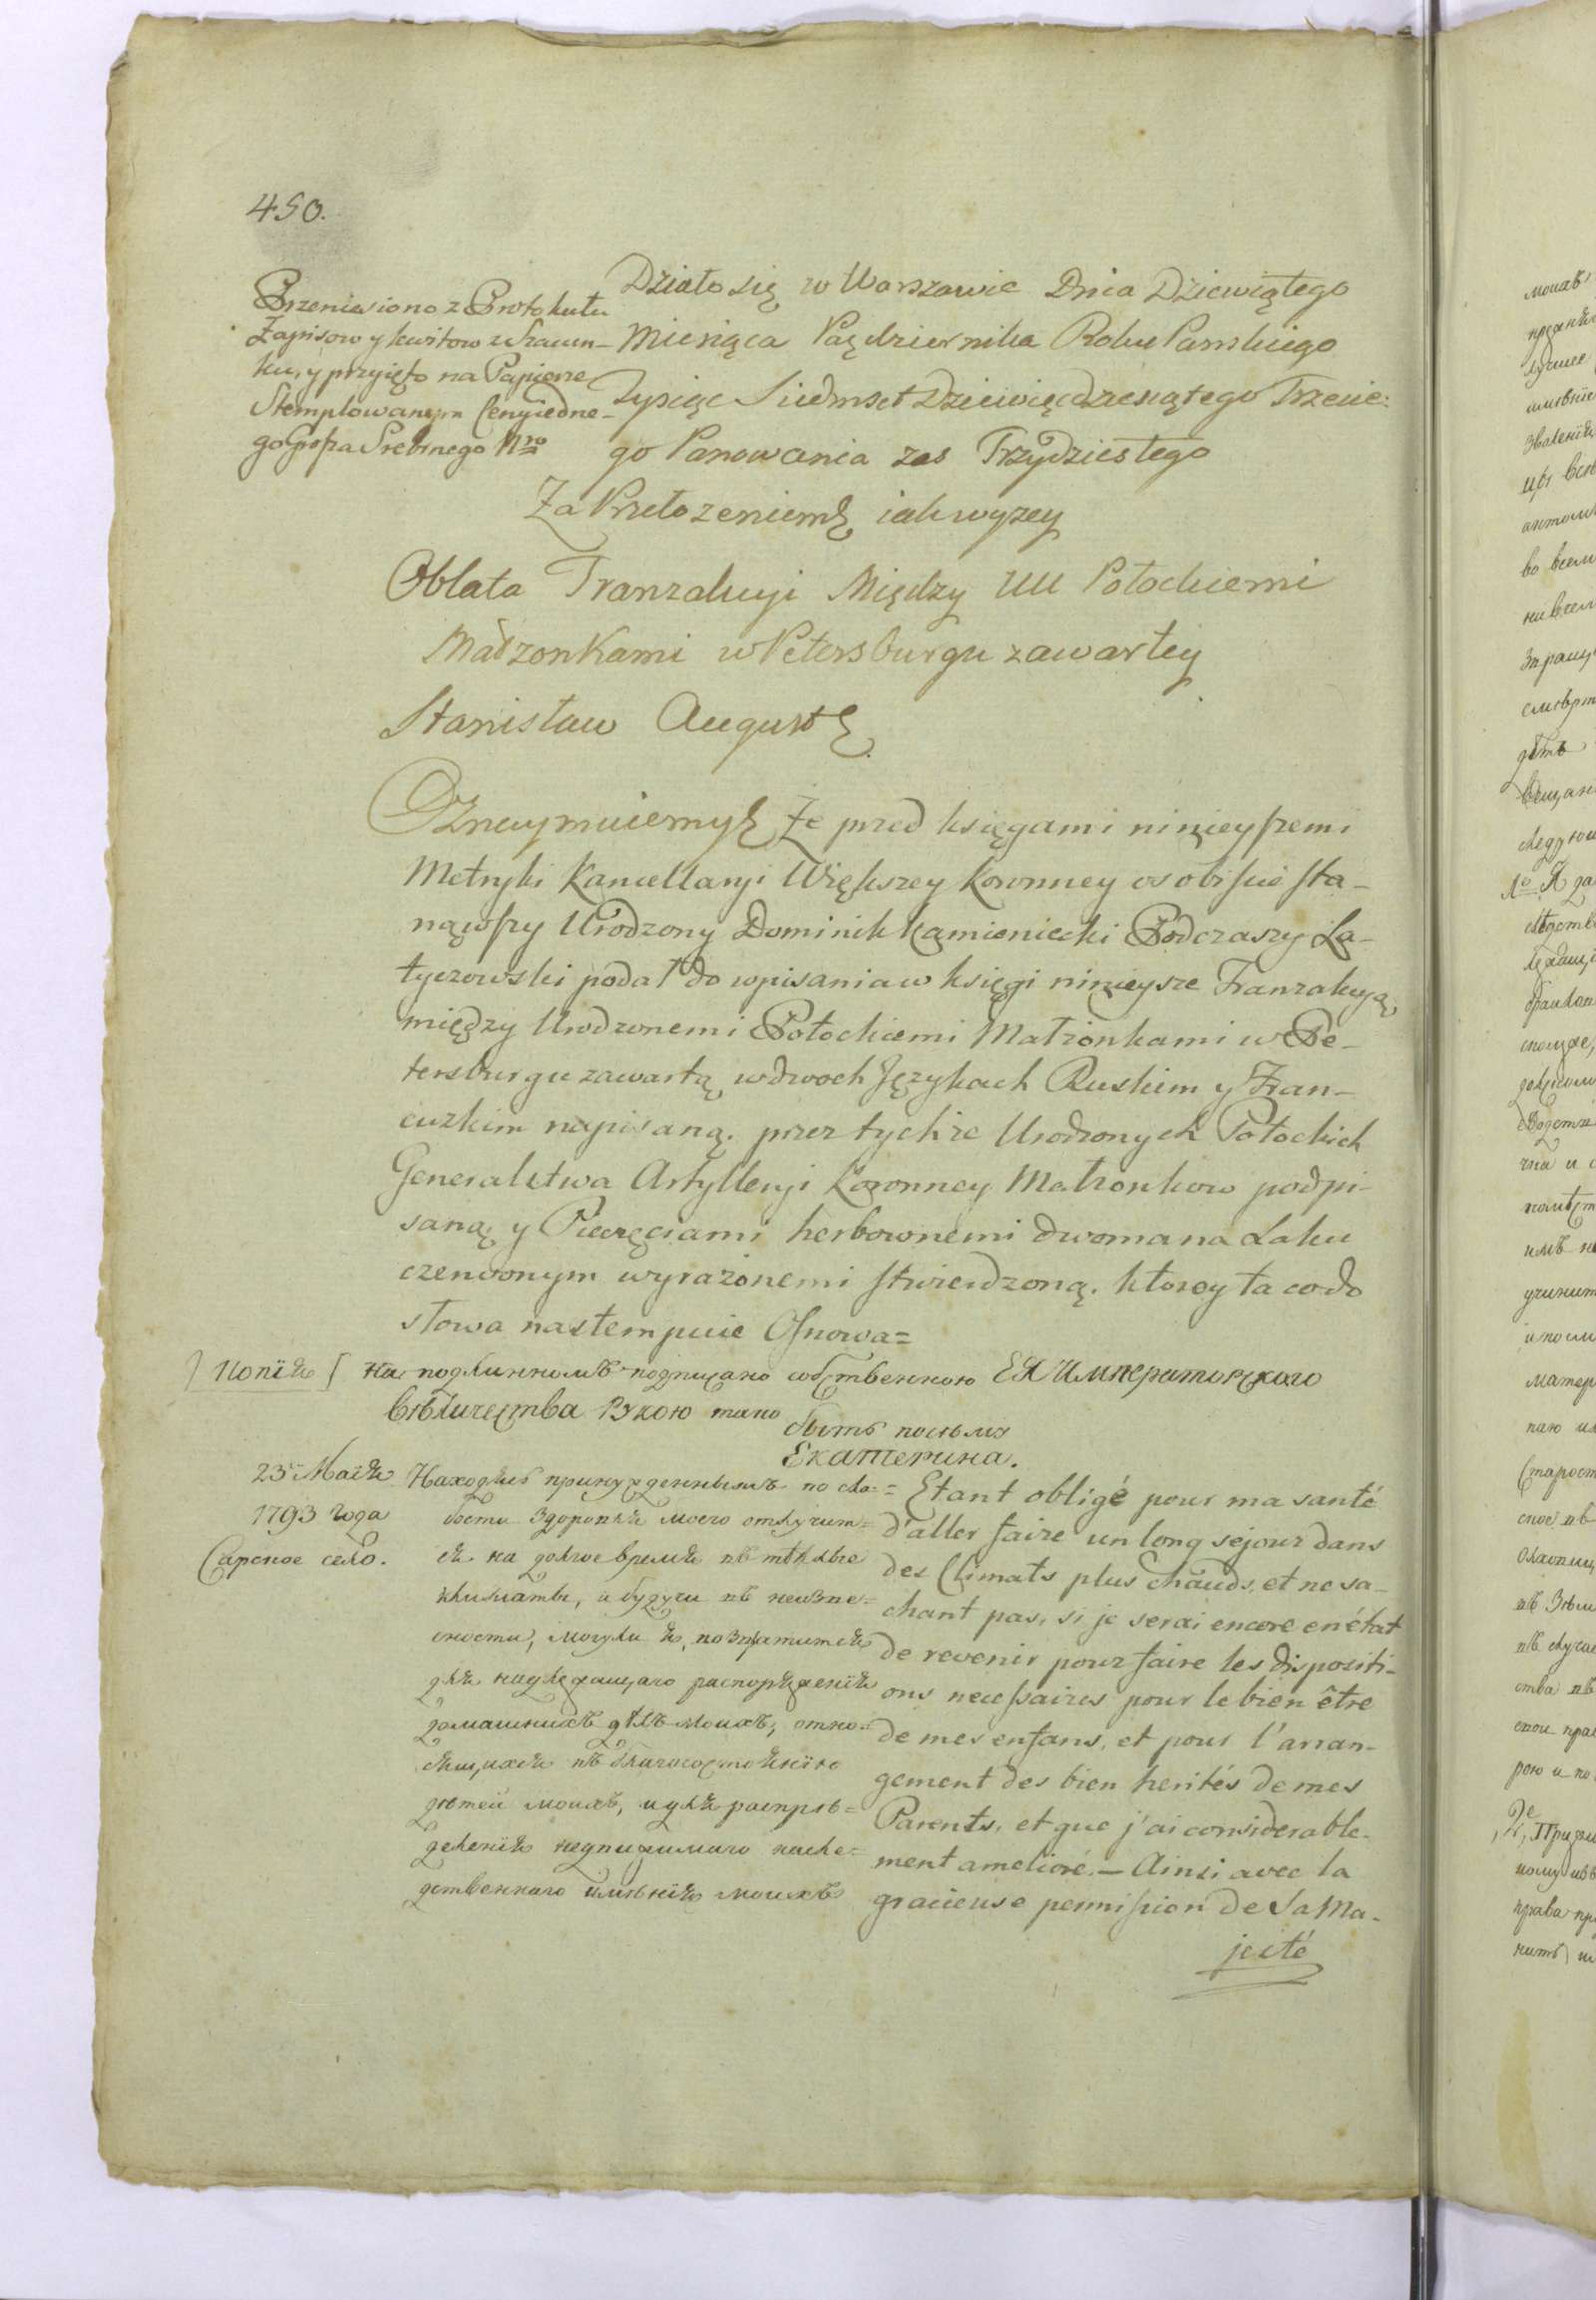 450.
Przeniesiono z Protokułu
Zapisow y kwitow w Stawn-
ku, y przyięto na Papierze
Stemplowanym Ceny iedne-
go Grosza Srebrnego Nro
Działo się w Warszawie Dnia Dziewiątego
Miesiąca Pażdziernika Roku Panskiego
Tysiąc Siedmset Dziewięcdziesiątego Trzecie:
go Panowania zas Trzydziestego
Za Przełozeniem iak wyzey
Oblata Tranzakcyi Między UU Potockiemi
Małzonkami w Petersburgu zawartey
Stanisław August
Oznaymuiemy Że przed księgami ninieyszemi
Metryki Kancellaryi Większey Koronney osobiscie sta-
nąwszy Urodzony Dominik Kamieniecki Podczaszy La-
tyczowski podał do wpisania w księgi ninieysze Tranzakcyą
między Urodzonemi Potockiemi Małżonkami w Pe-
tersburgu zawartą w dwoch Językach Ruskim y Fran-
cuzkim napisaną. przez tychże Urodzonych Potockich
Generalstwa Artylleryi Koronney Małżonkow podpi-
saną y Pieczęciami herbownemi dwoma na Laku
czerwonym wyrażonemi stwierdzoną. ktorey ta co do
słowa nastempuie Osnowa=
Копїя На подлинномъ подписано собственною ЕЯ Императорскаго
Величества Рукою тако
быть по сему
Екатерина.
23 Маїя
1793 года
Сарское село.
Находясь принужденнымъ по сла=
бости Здоровья моего отлучит=
ся на долгое время въ теплые
климаты, и будучи въ неизве=
стности, могули я, возвратится
для надлежащаго распоряженїя
домашнихъ дѣлъ моихъ, отно=
сящихся къ благосостоянїю
детей моихъ, и для распре=
деленїя недвижимаго насле=
дственнаго именїя моихъ
Etant obligé pour ma santé
d'aller faire un long sejour dans
des Climats plus chauds, et ne sa-
chant pas, si je serai encore en état
de revenir pour faire les dispositi-
ons necessaires pour le bien être
de mes enfans, et pour l'arran-
gement des bien herités de mes
Parents, et que j'ai considerable-
ment amelioré. — Ainsi avec la
gracieuse permission de Sa Ma-
jesté